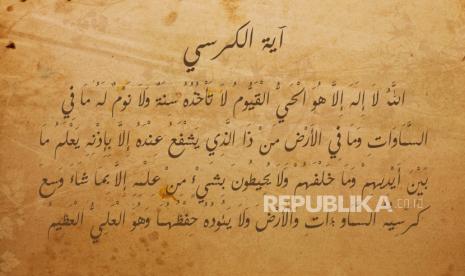 آية الكرسي
اللَّهُ لَا إِلَهَ إِلَّا هُوَ الْحَيُّ الْقَيُّومُ لَا تَأْخُذُهُ سِنَةٌ وَلَا نَوْمٌ لَهُ مَا فِي
السَّمَاوَاتِ وَمَا فِي الْأَرْضِ مَنْ ذَا الَّذِي يَشْفَعُ عِنْدَهُ إِلَّا بِإِذْنِهِ يَعْلَمُ مَا
بَيْنَ أَيْدِيهِمْ وَمَا خَلْفَهُمْ وَلَا يُحِيطُونَ بِشَيْءٍ مِنْ عِلْمِهِ إِلَّا بِمَا شَاءَ وَسِعَ
REPUBLIKA.co.id
وَالْأَرْضَ وَلَا يَئُودُهُ حِفْظُهُمَا وَهُوَ الْعَلِيُّ الْعَظِيمُ